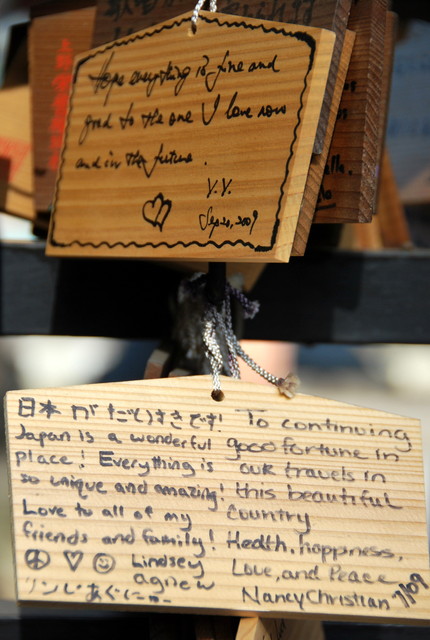 Hope everything is fine and
good to the one I love now
and in the future.
V.V.
Sep.20,2009
日本 が だいすきです!
Japan is a wonderful
place! Everything is
so unique and amazing!
Love to all of my
friends and family!
Lindsey
agnew
リンしいあぐにゅー
To continuing
good fortune in
our travels in
this beautiful
country
Health, happiness,
Love, and Peace
Nancy Christian 7/09